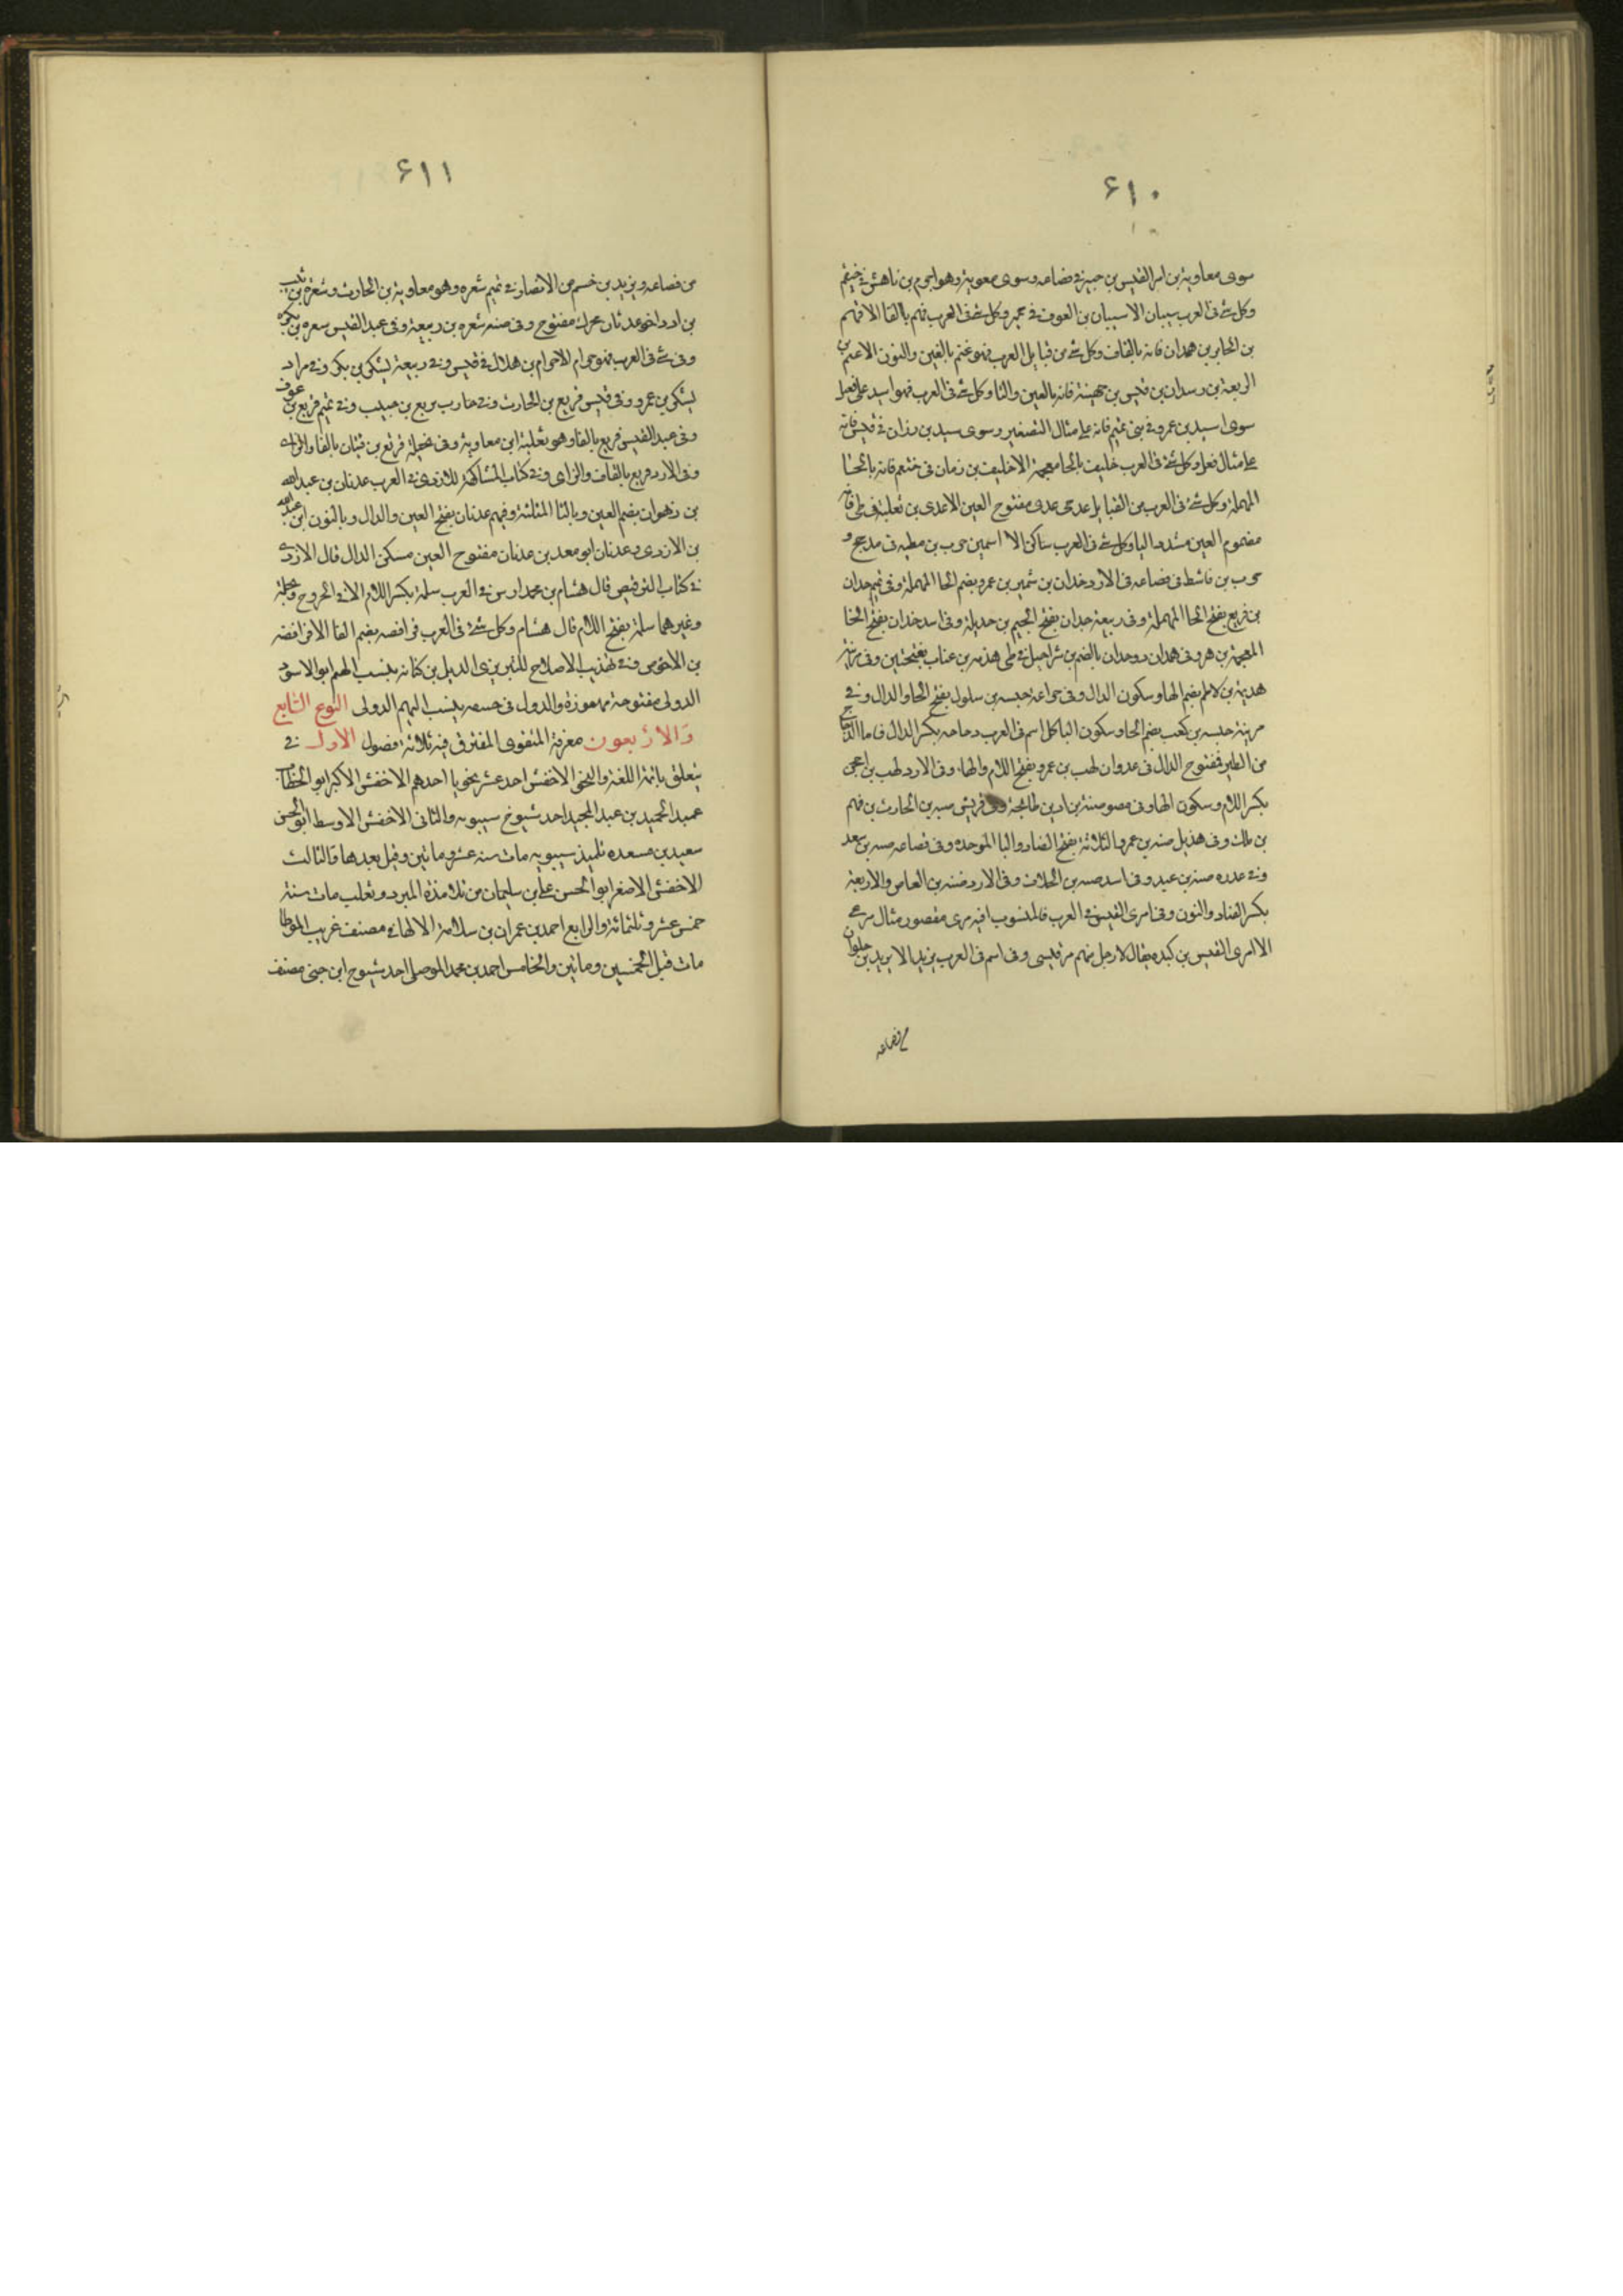 ٤١٠
سوى معاوية بن امر القيس بن حبير في قضاعه وسوى معوية وهو اجرم بن ناهش في خثعم
وكل شئ في العرب سيبان الا سيبان بن العوف في حمير وكل شئ في العرب فهم بالفا الا قهم
بن الجابر بن همدان فانه بالقاف وكل شئ من قبايل العرب فهو غنم بالغين والنون الا عثم بن
الربعة بن رسدان بن قيس بن جهينة فانه بالعين والثا وكل شئ في العرب فهو اسيد على فعيل
سوى اسيد بن عمرو في بني تميم فانه على مثال التصغير وسوى سيد بن رزان في قيس فانه
على مثال فعل وكل شئ في العرب خليف بالخا معجمة الا خليف بن زمان في خثعم فانه بالحا
المهملة وكل شئ في العرب من القبايل عدي عدى مفتوح العين الا عدى بن ثعلبة في طى فانه
مضموم العين مشدد اليا وكل شئ في العرب ساكن الا اسمين حرب بن مظبه في مدحج و
حرب بن قاشط في قضاعه في الازد خدان بن شمير بن عمرو بضم الحا المهملة وفي تميم حدان
بن قريع بفتح الحا المهملة وفي ربيعة جدان بفتح الجيم بن جديلة وفي اسد خدان بفتح الخا
المعجمة بن هر وفي همدان دوحدان بالضم بن شراحيل في طى هذمه بن عناب بفتحتين وفي مزينة
هدية بن لاطم بضم الها وسكون الدال وفي خزاعة حبسه بن سلول بفتح الحا والدال وفي
مزينة حبسه بن كعب بضم الحا وسكون البا كل اسم في العرب دجاجه بكسر الدال فاما الدجاج
من الطير فمفتوح الدال في عدوان لهب بن عمرو بفتح اللام والها وفي الازد لهب بن احجن
بكسر اللام وسكون الها وفي مضر ضبة بن اد بن طابخة وفي قريش ضبه بن الحارث بن فهم
بن مالك وفي هذيل ضبه بن عمرو الثلاثة بفتح الضاد والبا الموحده وفي قضاعه ضنه بن سعد
وفي عدره ضنه بن عبد وفي اسد ضنه بن الحلاف وفي الازد ضنه بن العاص والاربعة
بكسر الضاد والنون وفي امرى القيس في العرب فالمنسوب اليه مرى مقصور مثال مرعي
الا امرى القيس بن كنده يقال لارجل منهم مرقيسى وفي اسم في العرب يزيد الا يزيد بن حلوان
من قضاعه
٤١١
من قضاعه ويزيد بن خسم من الانصار في تميم شعره وهو معاوية بن الحارث وشقره بن نبت
بن ادد اخو عدنان محرك مفتوح وفي ضبه شقره بن ربيعة وفي عبد القيس سعره بن بكره
وفي شئ في العرب فهو حرام الا حرام بن هلال في قيس وفي ربيعة ليشكر بن بكر وفي مراد
ليشكر بن عمرو وفي قيس قريع بن الحارث وفي محارب بريع بن حبيب وفي تميم قريع بن عوف
وفي عبد القيس فريع بالفا وهو ثعلبة ابن معاوية وفي بجيلة فريع بن فتيان بالفا والزاى
وفي الازد قريع بالقاف والزاى وفي كتاب المشاكهة للازدى في العرب عدنان بن عبد الله
بن زهوان بضم العين وبالثا المثلثة وفيهم عدنان بفتح العين والدال وبالنون ابن عبد الله
بن الازدى وعدنان ابو معد بن عدنان مفتوح العين مسكن الدال قال الازدى
في كتاب الترقيص قال هشام بن محمد ارس في العرب سلمة بكسر اللام الا في الخزرج وبجيلة
وغيرهما سلمة بفتح اللام قال هشام وكل شئ في العرب فرافصه بضم الفا الا فرافصه
بن الاخوص وفي تهذيب الاصلاح للتبريزى الديل بن كنانه ينسب اليهم ابو الاسود
الدولى مفتوحة مهموزة والدول في حسصه ينسب اليهم الدولى النوع السابع
وَالاربعون معرفة المتفوى المفترق فيه ثلاثة فصول الاول في
يتعلق بائمة اللغة والنحو الاخفش احد عشر نحويا احدهم الاخفش الاكبر ابو الخطاب
عبد الحميد بن عبد المجيد احد شيوخ سيبويه والثانى الاخفش الاوسط ابو الحسن
سعيد بن مسعده تلميذ سيبويه مات سنة عشر وماتين وقيل بعدها قالثالث
الاخفش الاصغر ابو الحسن على بن سليمان من تلامذة المبرد وثعلب مات سنة
خمس عشر وثلثمائة والرابع احمد بن عمران بن سلامة الالهاني مصنف غريب الموطا
مات قبل الخمسين وماتين والخامس احمد بن محمد الموصلى احد شيوخ ابن جنى مصنف